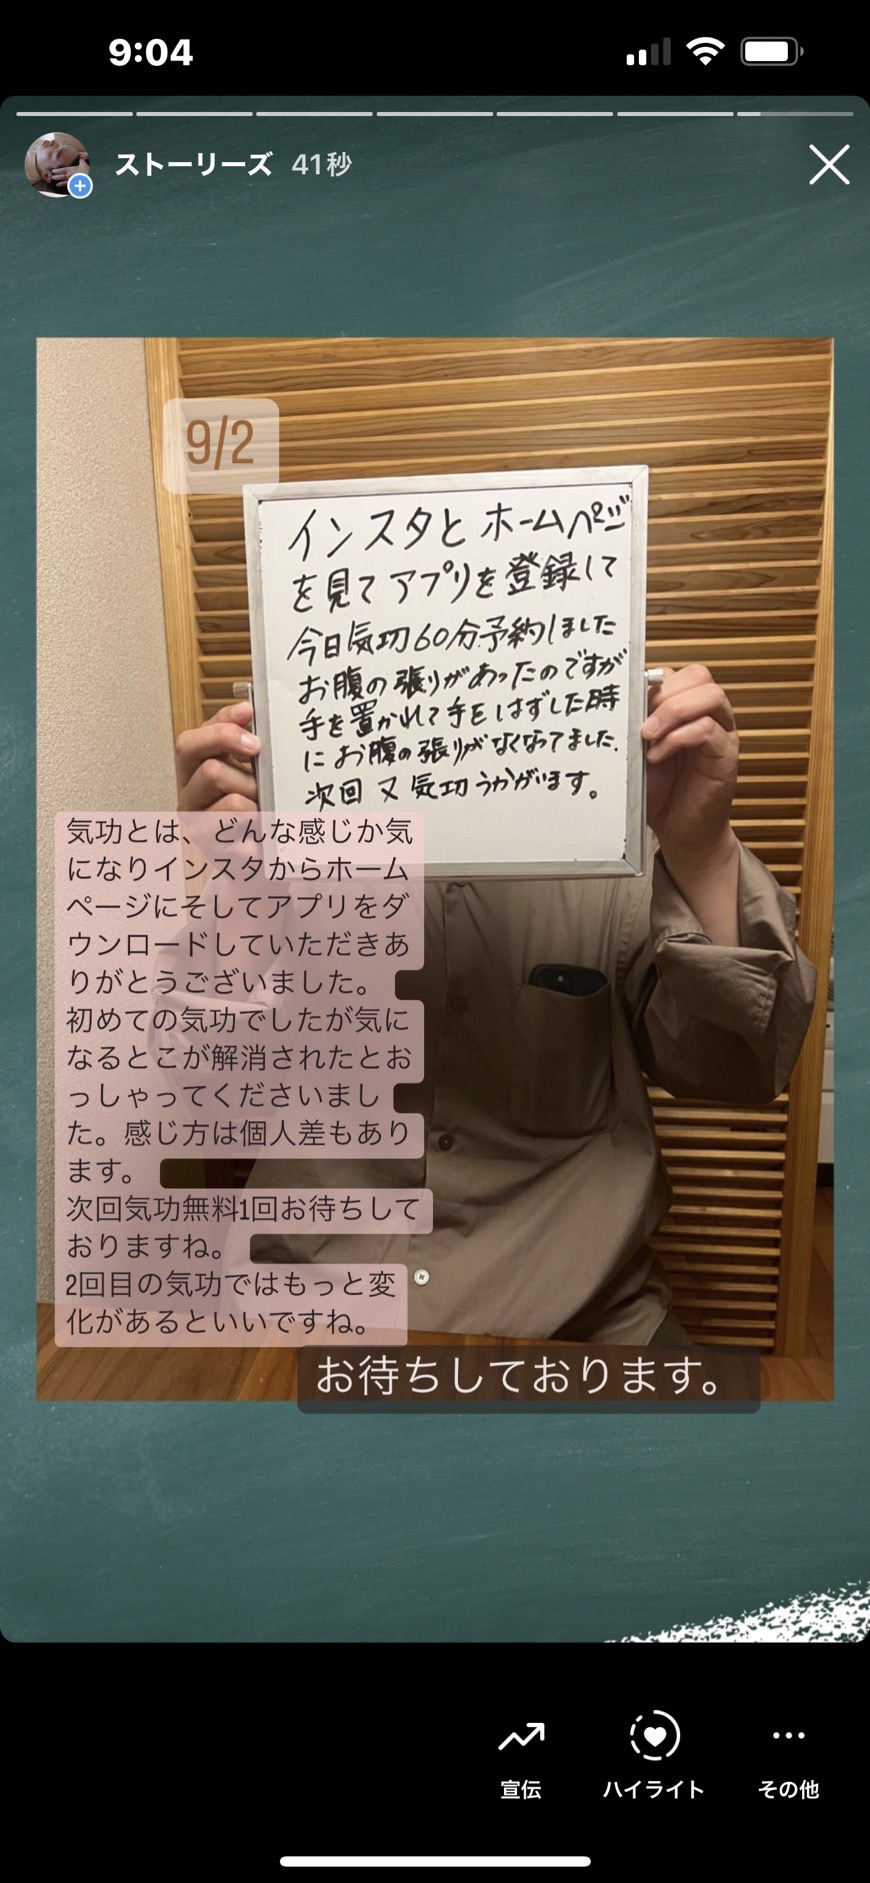 9:04
ストーリーズ 41秒
9/2
インスタと ホームページ
を見て アプリを登録して
今日気功60分予約しました
お腹の張りがあったのですが
手を置かれて手をはずした時
に お腹の張りがなくなってました。
次回 又 気功うかがいます。
気功とは、どんな感じか気
になりインスタからホーム
ページにそしてアプリをダ
ウンロードしていただきあ
りがとうございました。
初めての気功でしたが気に
なるとこが解消されたとお
っしゃってくださいまし
た。感じ方は個人差もあり
ます。
次回気功無料1回お待ちして
おりますね。
2回目の気功ではもっと変
化があるといいですね。
お待ちしております。
宣伝
ハイライト
その他